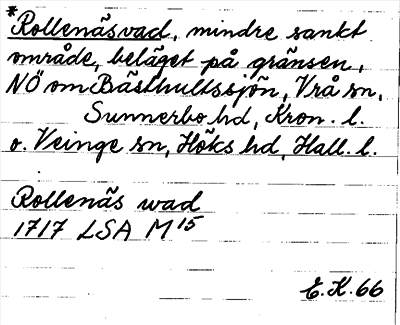 *Rollenäsvad, mindre sankt
område, beläget på gränsen,
NÖ om Bästhultssjön, Vrå sn,
Sunnerbo hd, Kron. l.
o. Veinge sn, Höks hd, Hall. l.
Rollenäs wad
1717 LSA M 15
E.K. 66